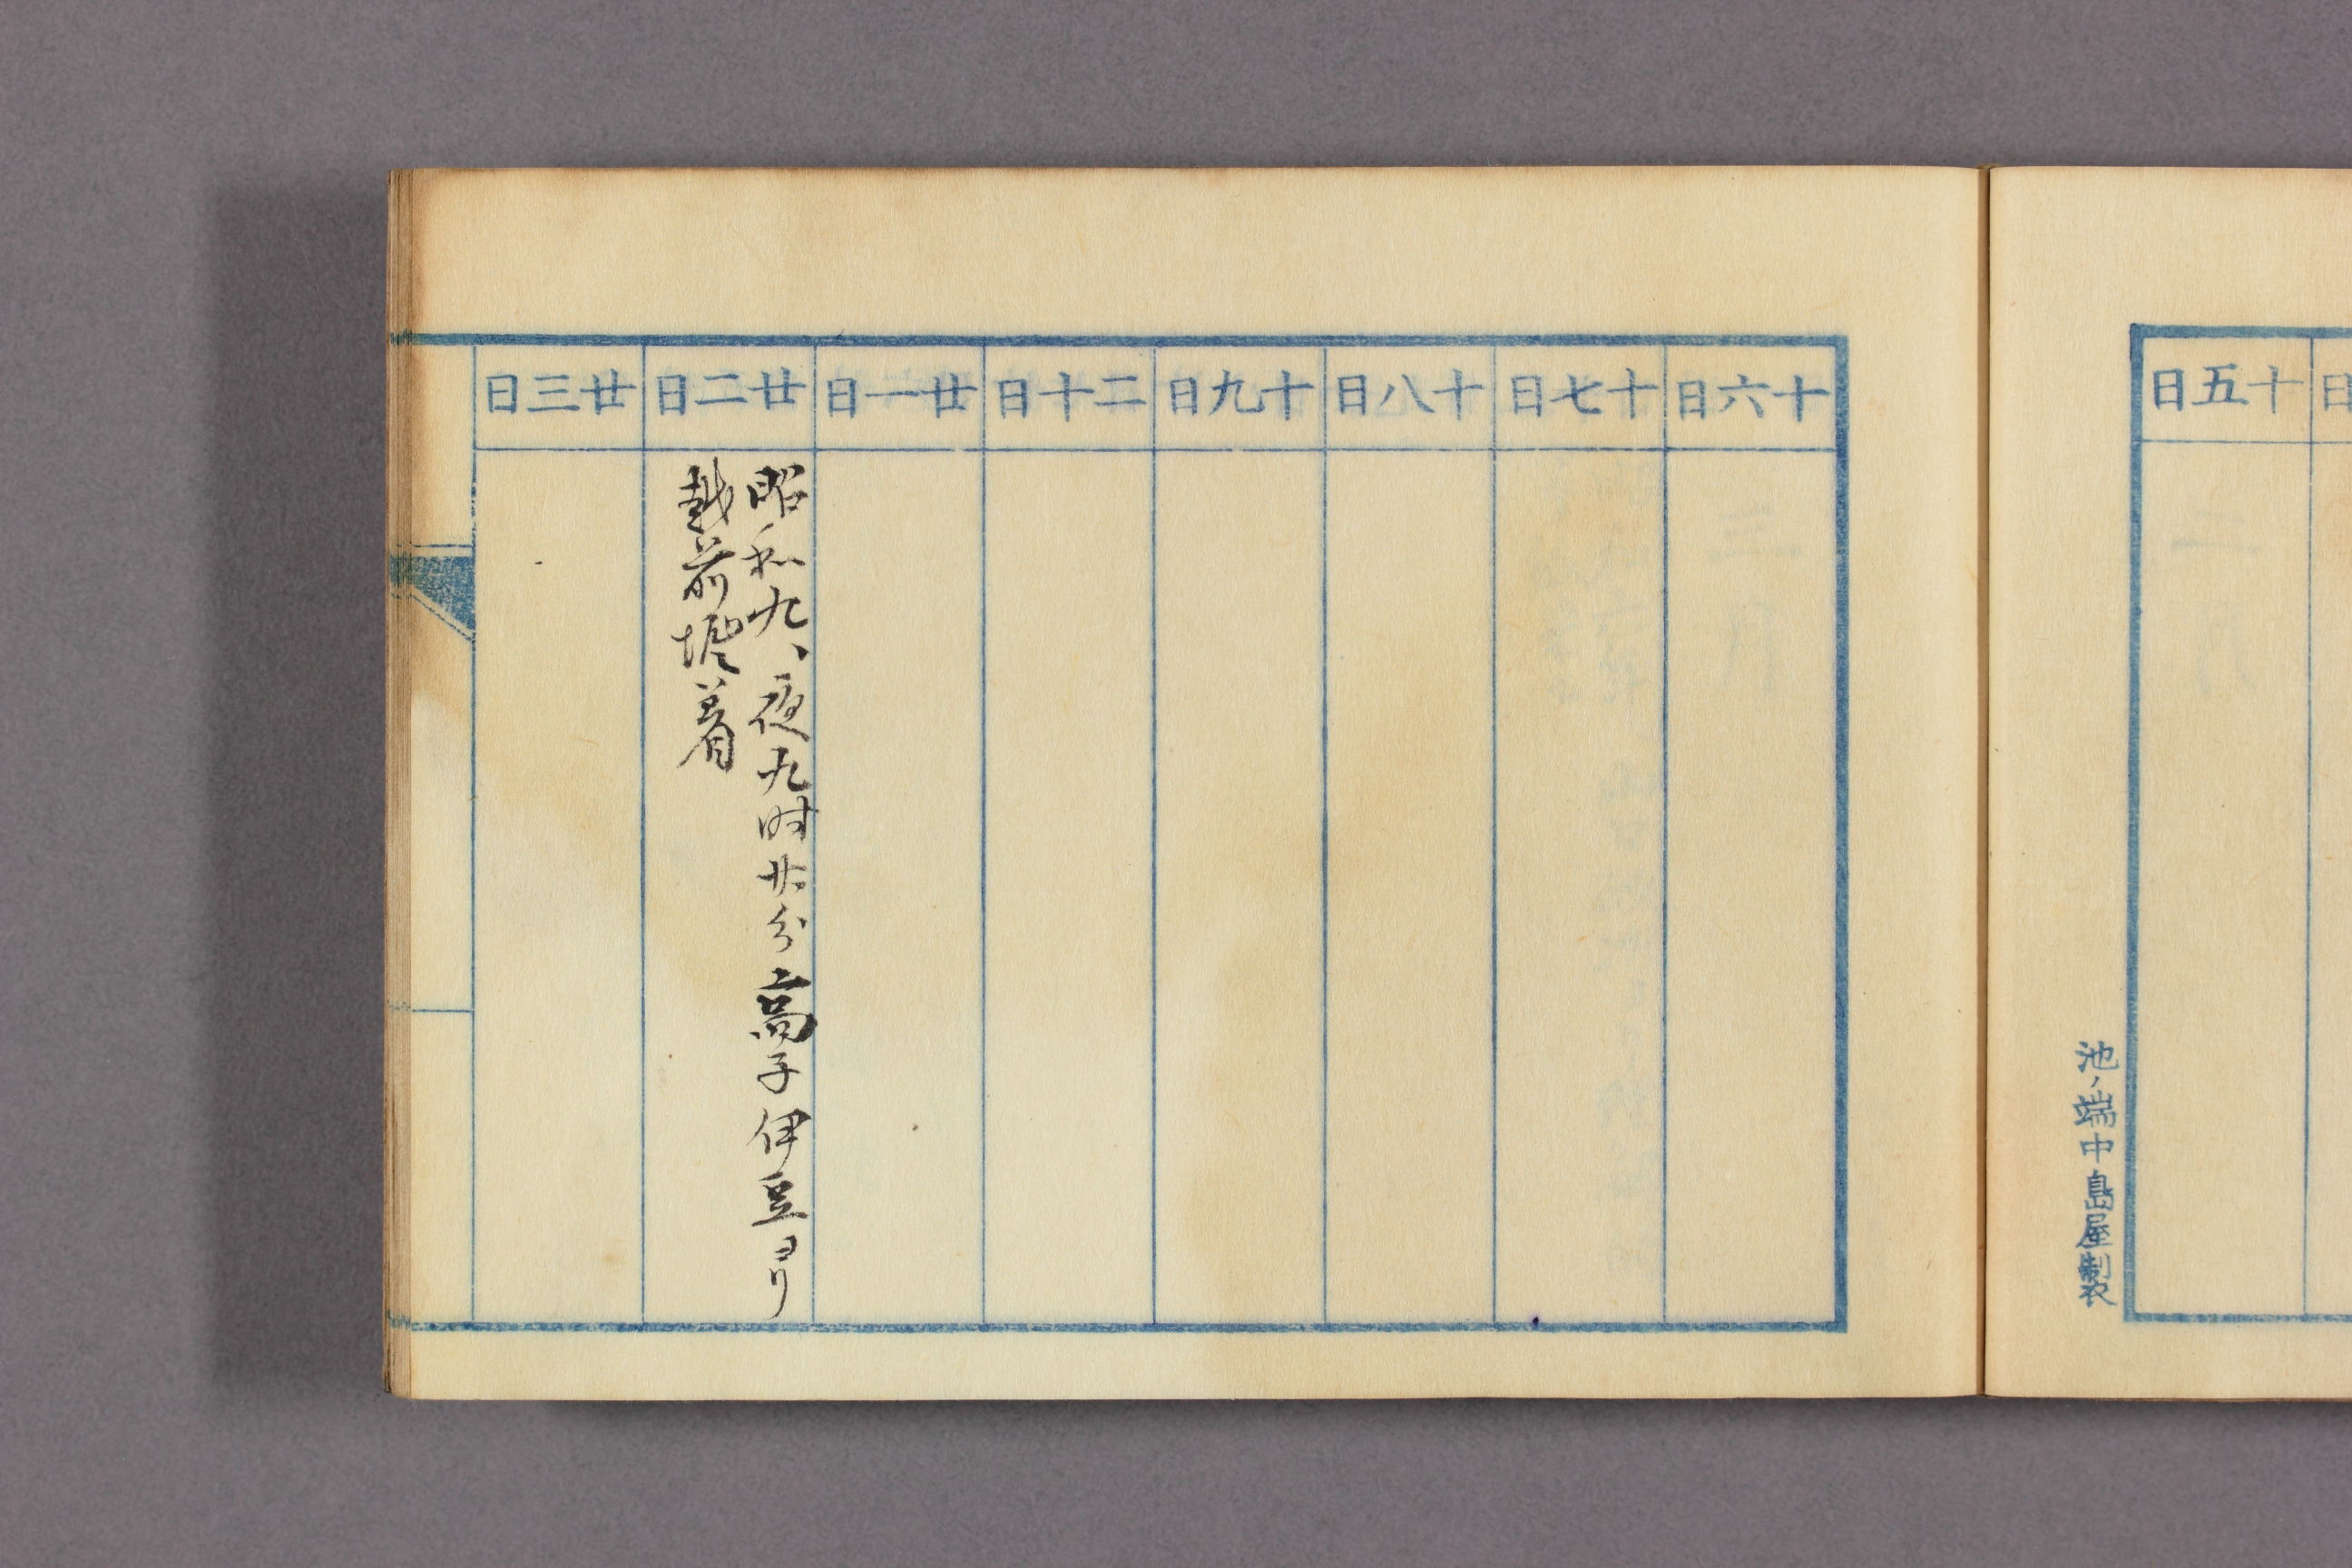 日
十五日
池ノ端中島屋製
十六日
十七日
十八日
十九日
二十日
廿一日
廿二日
昭和九、夜九時廿分高子伊豆ヨリ
越前堀着
廿三日